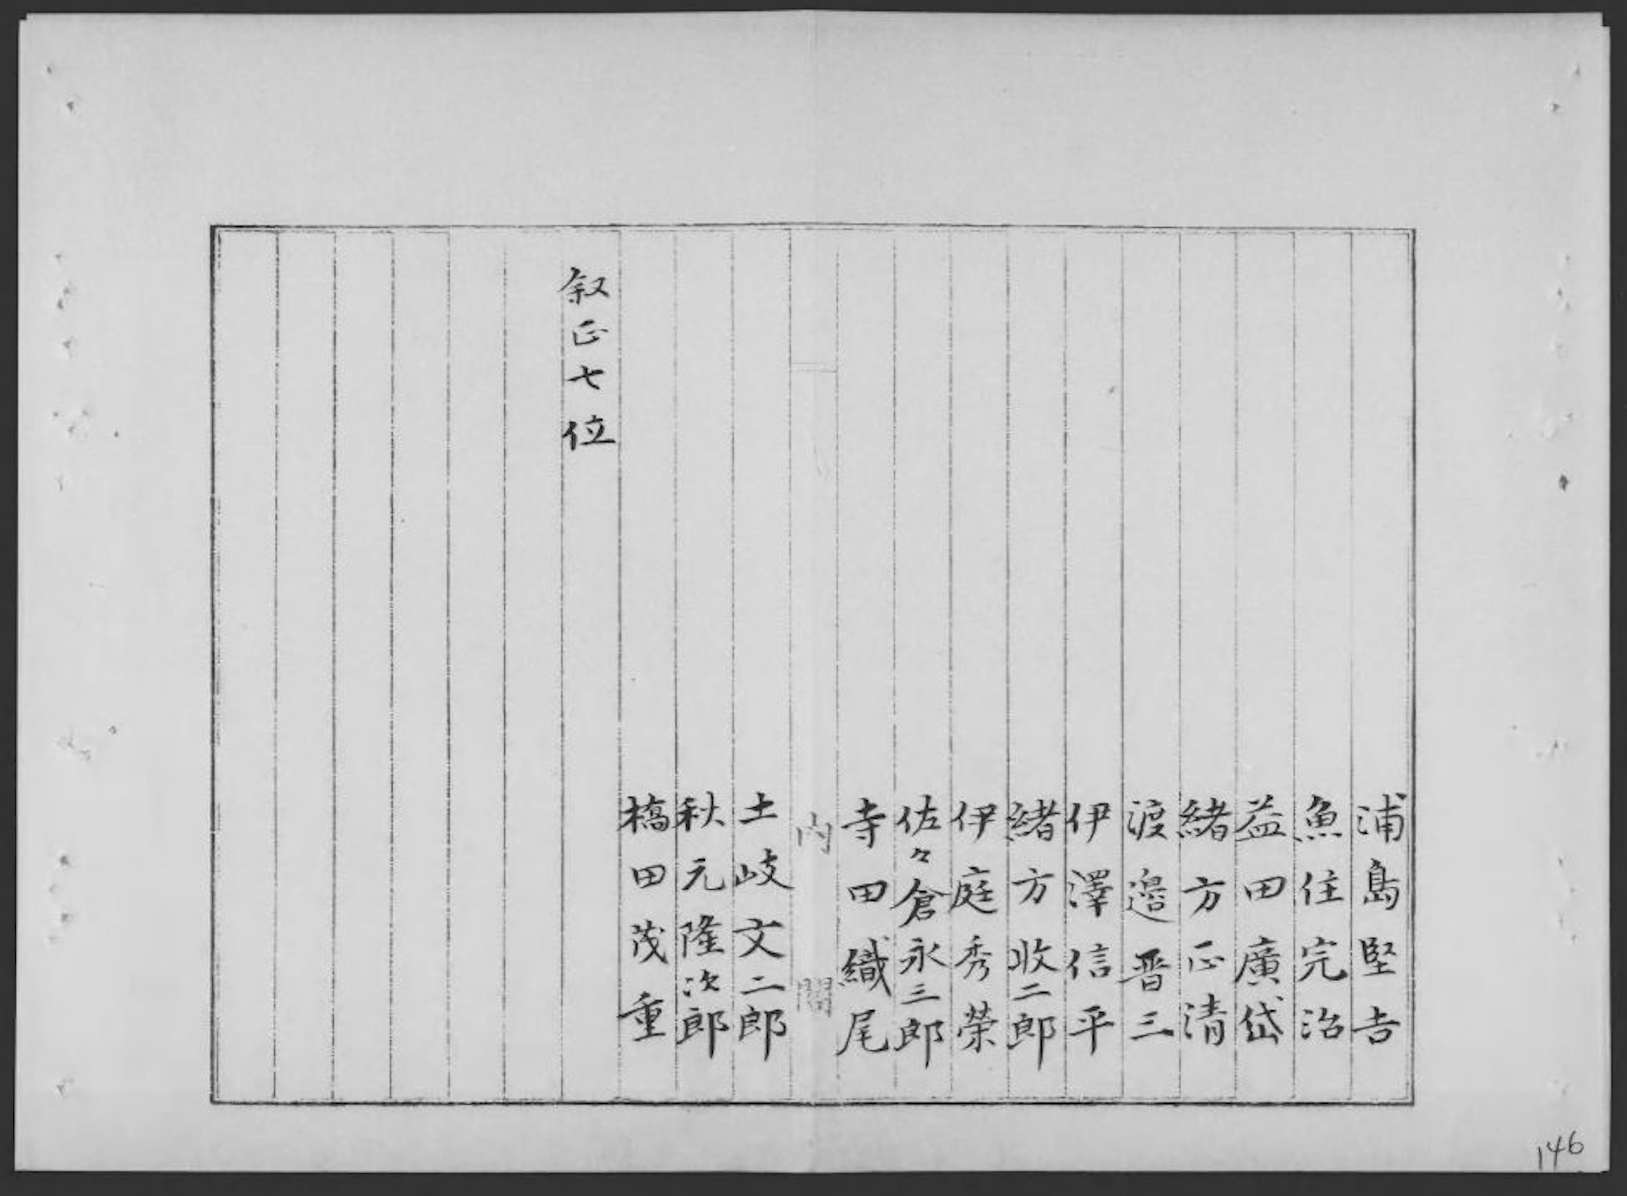 浦島堅吉
魚住完治
益田廣岱
緒方正清
渡邉晋三
伊澤信平
緒方收二郎
伊庭秀榮
佐々倉永三郎
寺田織尾
内閣
土岐文二郎
秋元隆次郎
橋田茂重
叙正七位
146